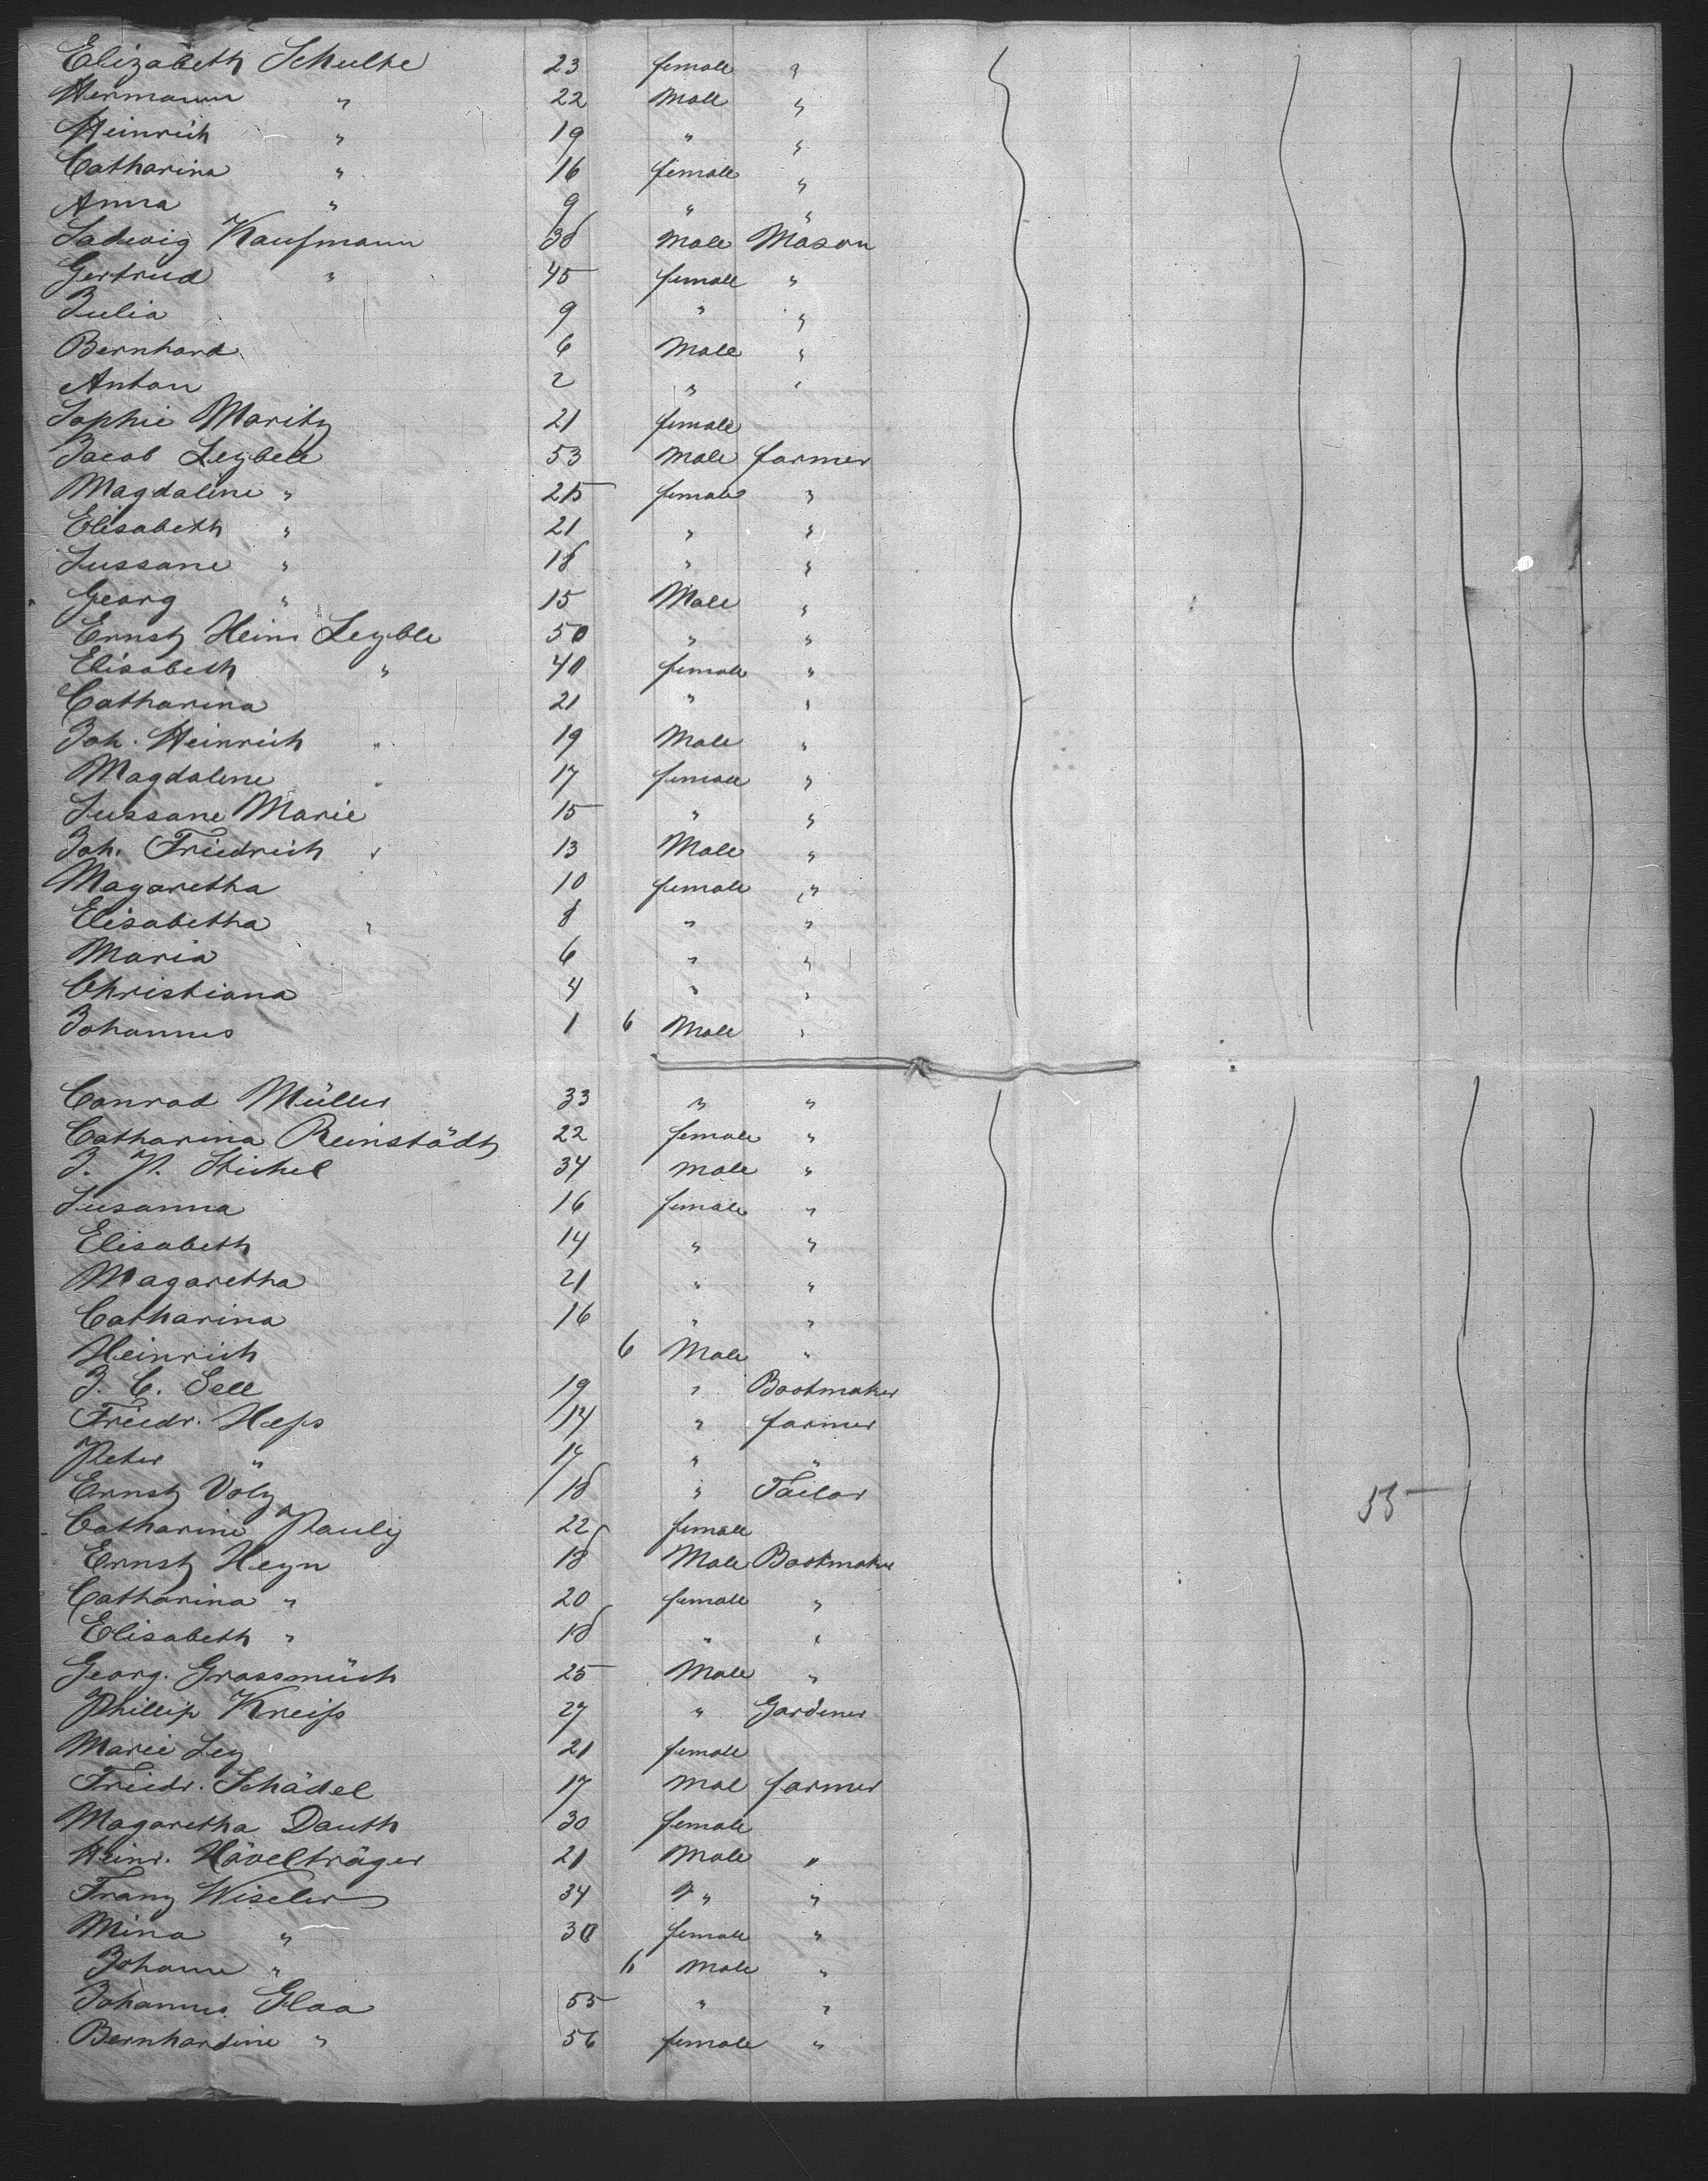 Elizabeth Schulte 23 female "
Hermann " 22 Male "
Heinrich " 19 " "
Catharina " 16 female "
Anna " 9 " "
Ludwig Kaufmann 38 Male Mason
Gertrud " 45 female "
Julia 9 " "
Bernhard 6 Male "
Anton 2 " "
Sophie Maritz 21 female
Jacob Leyble 53 Male farmer
Magdaline " 25 female "
Elisabeth " 21 " "
Sussane " 18 " "
Georg " 15 Male "
Ernst Heinr Leyble 50 " "
Elisabeth " 40 female "
Catharina 21 " "
Joh. Heinrich " 19 Male "
Magdalene " 17 female "
Sussane Marie 15 " "
Joh. Friedrich " 13 Male "
Magaretha 10 female "
Elisabetha " 8 " "
Maria 6 " "
Christiana 4 " "
Johannes 1 6 Male "
Conrad Müller 33 " "
Catharina Reinstädt 22 female "
J. P. Stichel 34 male "
Susanna 16 female "
Elisabeth 14 " "
Magaretha 21 " "
Catharina 16 " "
Heinrich 6 Male "
J. C. Sell 19 " Bootmaker
Friedr. Hess 14 " farmer
Peter " 17 " "
Ernst Volz 18 " Tailor
Catharine Pauly 22 female
Ernst Heyn 18 Male Bootmaker
Catharina " 20 female "
Elisabeth " 18 " "
Georg. Grassmück 25 Male "
Phillip Kreiss 27 " Gardener
Marie Ley 21 female
Friedr. Schädel 17 Mal farmer
Magaretha Dauth 30 female
Heinr. Hävelträger 21 Male "
Franz Wiseler 34 " "
Mina " 30 female "
Johann " 6 Male "
Johannes Glaa 55 " "
Bernhardine " 56 female "
55